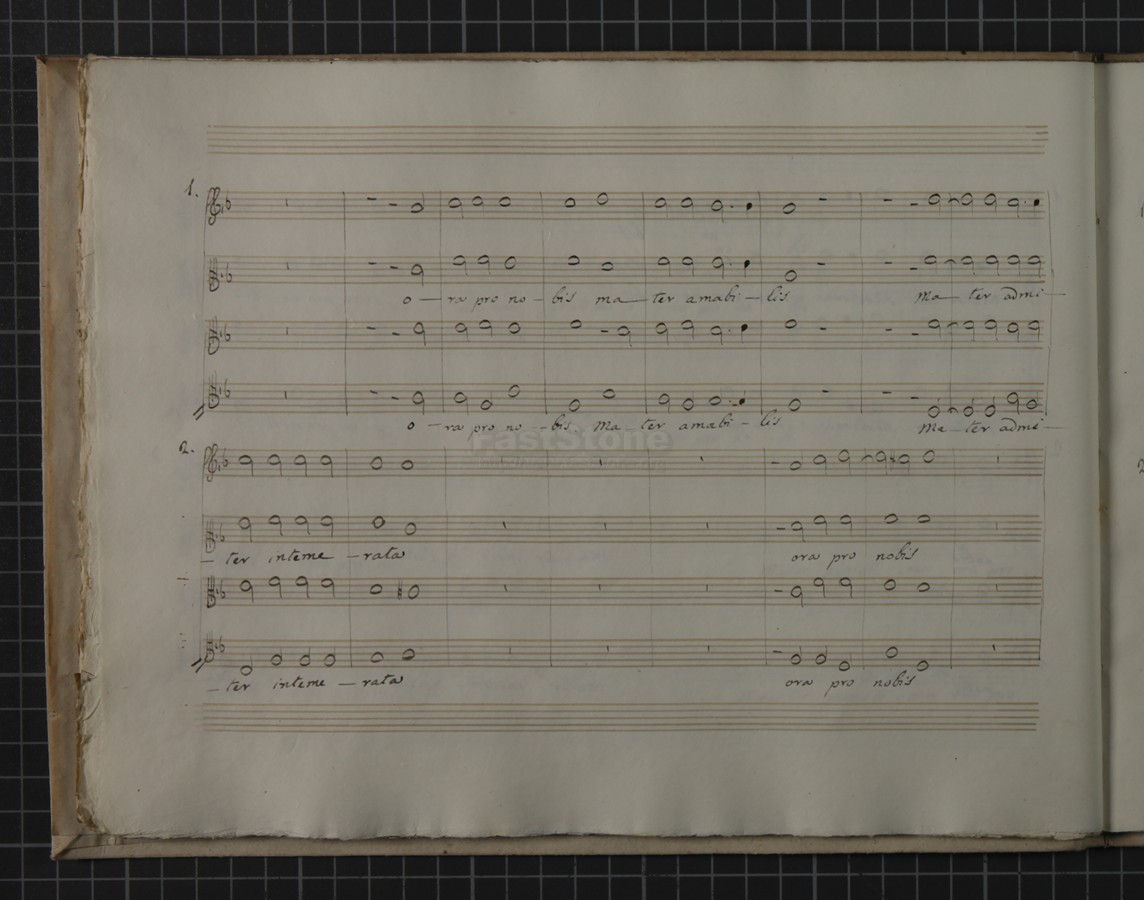 1.
o — ra pro no — bis ma — ter amabi — lis Ma — ter admi —
o — ra pro no — bis. Ma — ter amabi — lis Ma — ter admi —
FastStone
2.
— ter inteme — rata ora pro nobis
— ter inteme — rata ora pro nobis